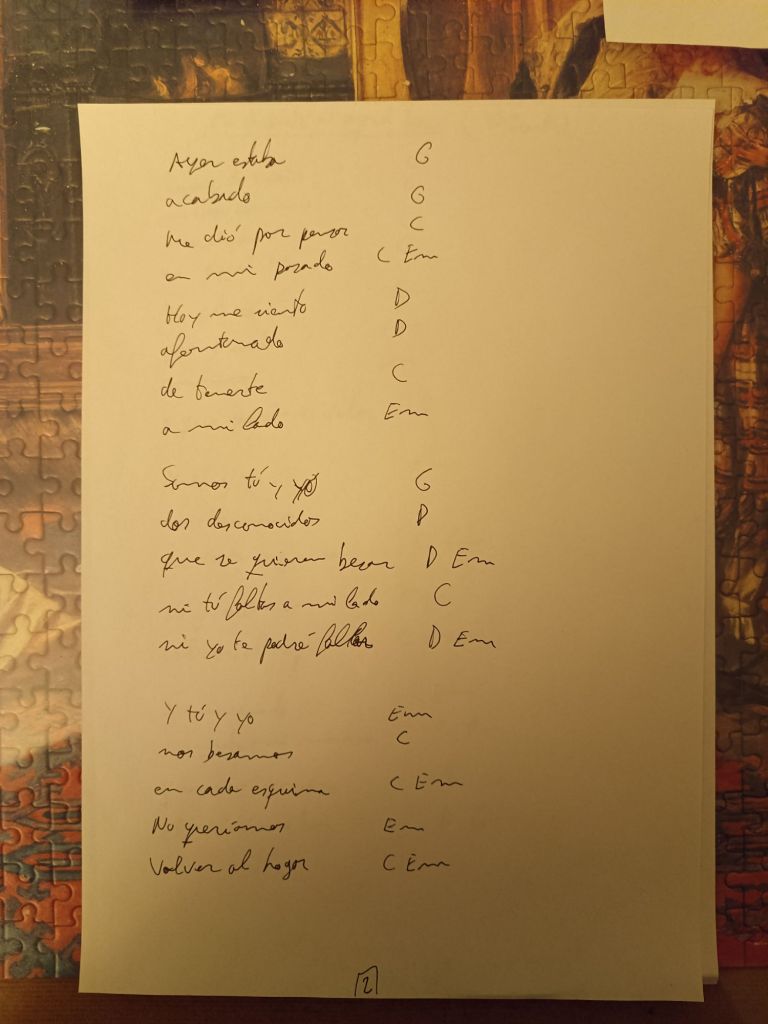 Ayer estaba G
acabado G
Me dió por pensar C
en mi pasado C Em
Hoy me siento D
afortunado D
de tenerte C
a mi lado Em
Somos tú y yo G
dos desconocidos D
que se quieren besar D Em
ni tú faltas a mi lado C
ni yo te podré faltar D Em
Y tú y yo Em
nos besamos C
en cada esquina C Em
No queríamos Em
Volver al hogar C Em
2